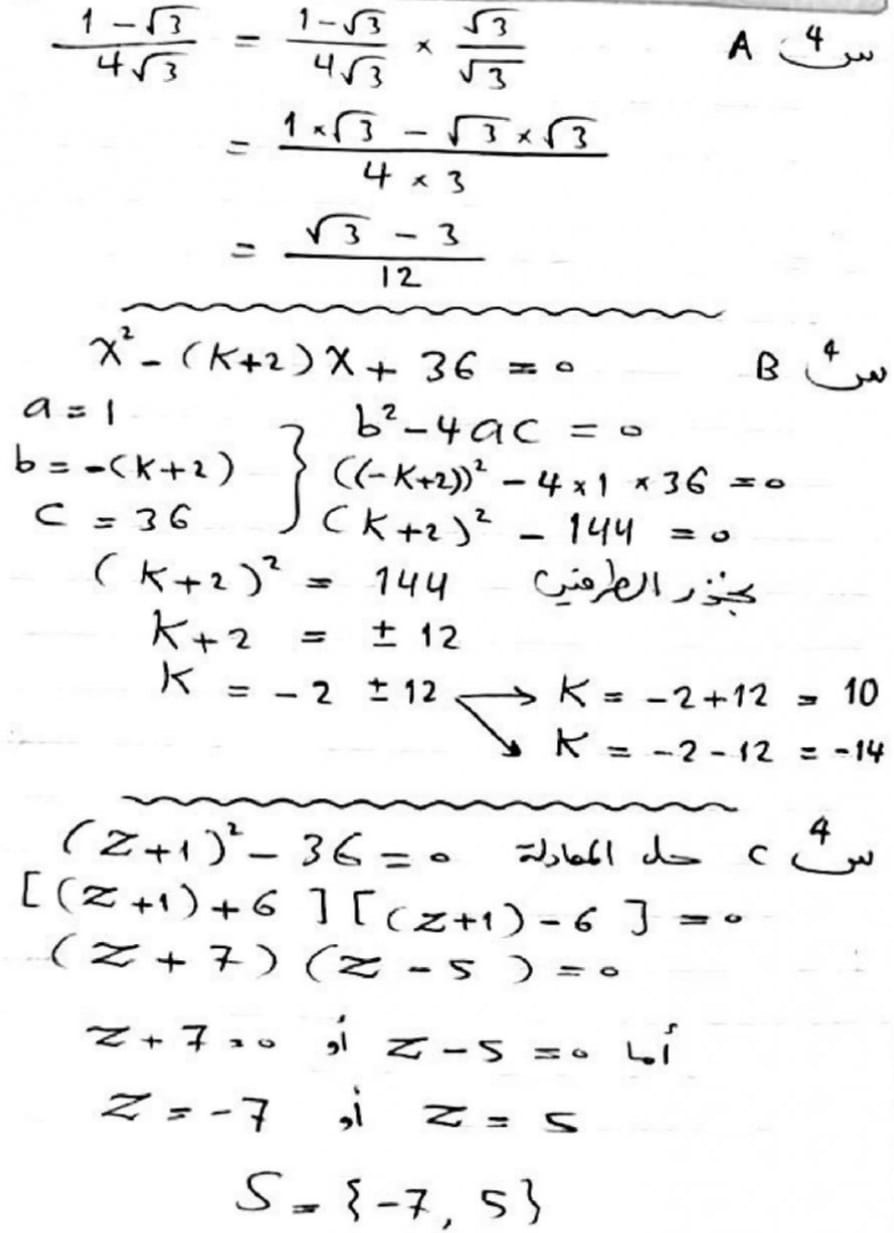 س4 A (1-√3)/(4√3) = (1-√3)/(4√3) × √3/√3
= (1×√3 - √3×√3)/(4×3)
= (√3 - 3)/12
س4 B x² - (K+2)x + 36 = 0
a = 1
b = -(K+2)
c = 36
b² - 4ac = 0
((-K+2))² - 4×1×36 = 0
(K+2)² - 144 = 0
(K+2)² = 144 بجذر الطرفين
K+2 = ±12
K = -2 ±12 → K = -2+12 = 10
↘ K = -2-12 = -14
س4 C حل المعادلة (z+1)² - 36 = 0
[(z+1)+6][(z+1)-6] = 0
(z+7)(z-5) = 0
أما z-5=0 أو z+7=0
z = 5 أو z = -7
S = {-7, 5}